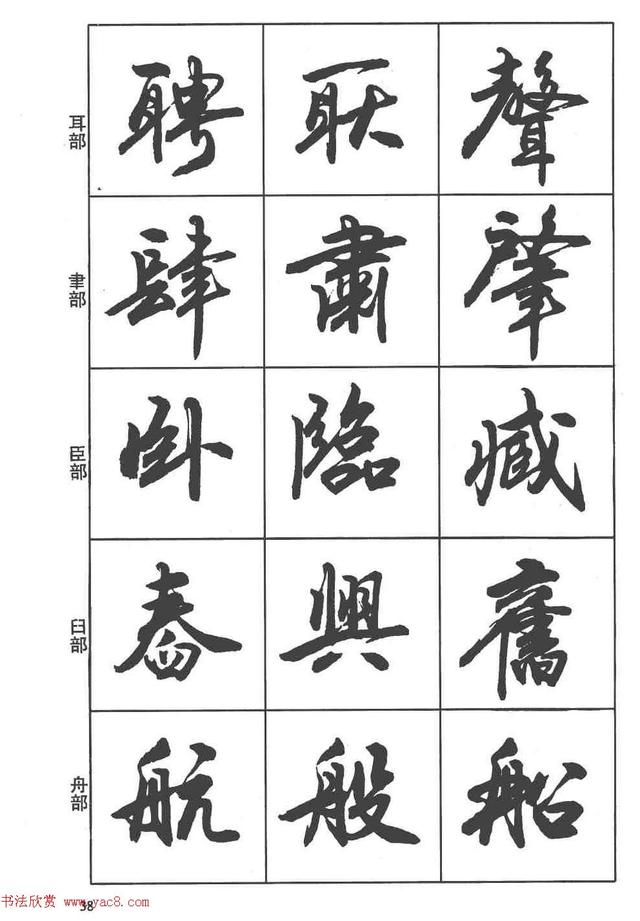 耳部 聘 耿 聲
聿部 肆 肅 肇
臣部 卧 臨 臧
臼部 舂 興 舊
舟部 航 般 船
书法欣赏 www.yac8.com
38